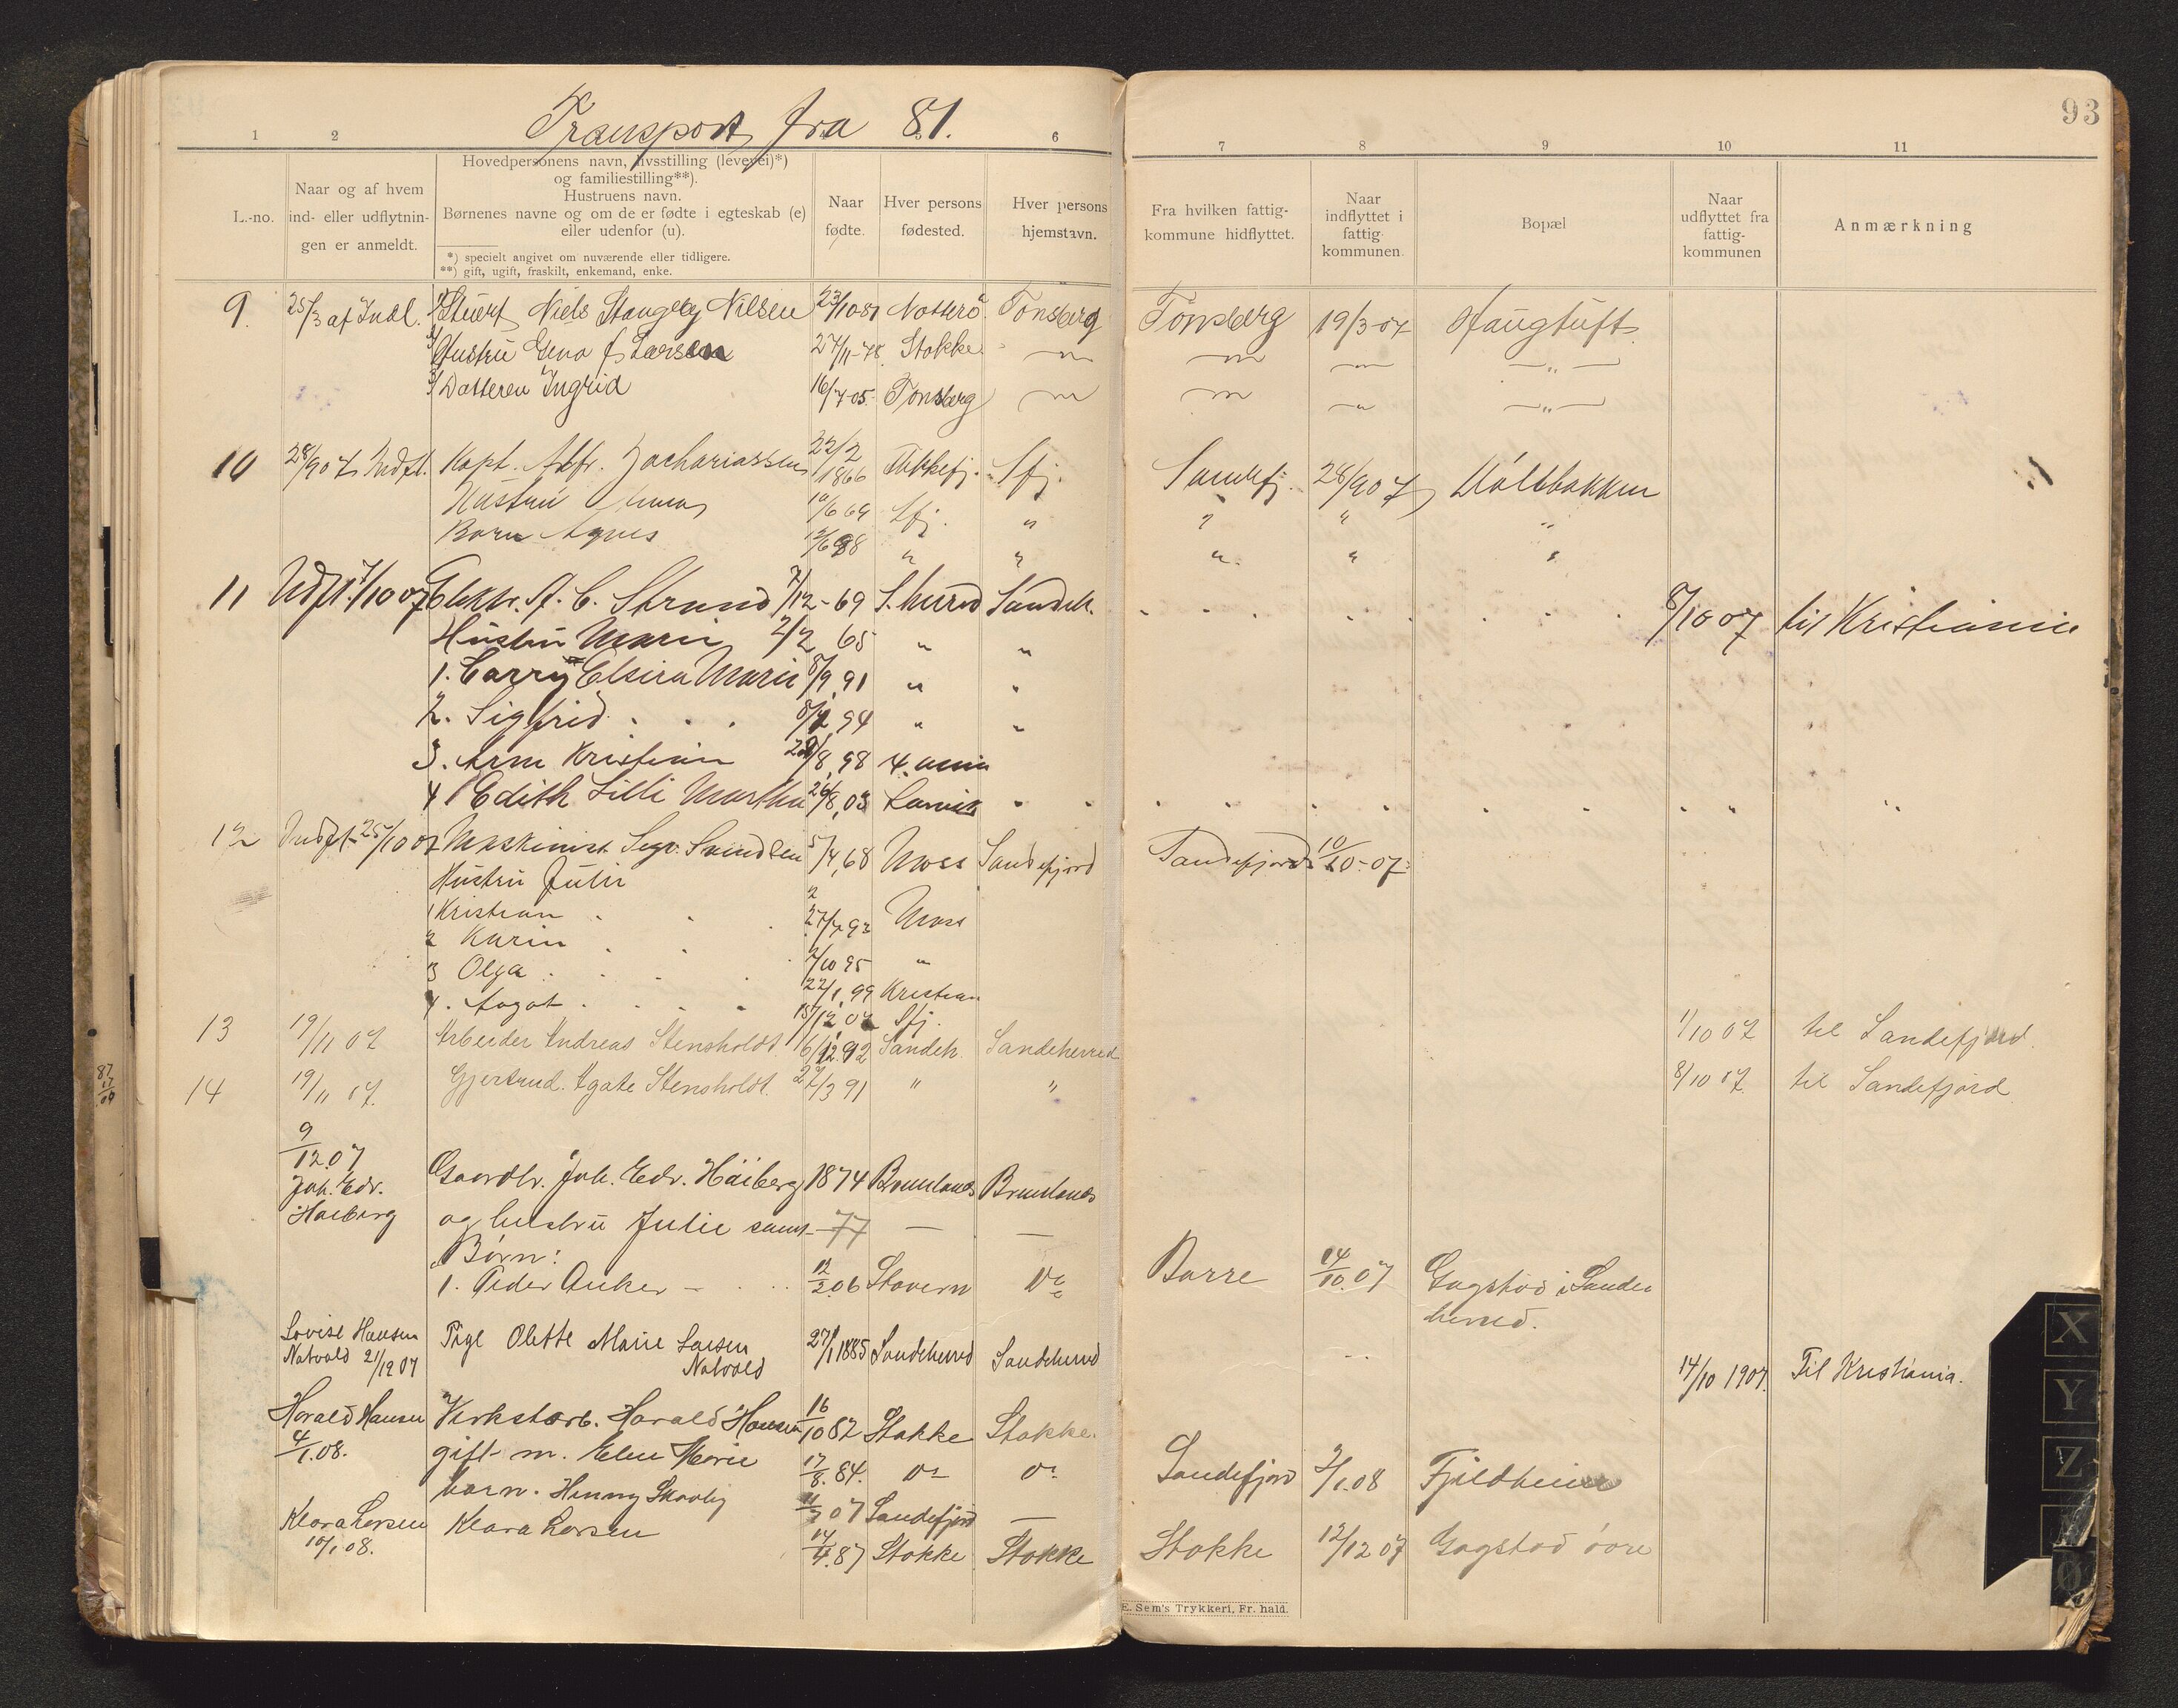 Transport fra 81.
93
1 2 6 7 8 9 10 11
L.-no.
Naar og af hvem
ind- eller udflytnin-
gen er anmeldt.
Hovedpersonens navn, livsstilling (levevei)*)
og familiestilling**).
Hustruens navn.
Børnenes navne og om de er fødte i egteskab (e)
eller udenfor (u).
*) specielt angivet om nuværende eller tidligere.
**) gift, ugift, fraskilt, enkemand, enke.
Naar
fødte.
Hver persons
fødested.
Hver persons
hjemstavn.
Fra hvilken fattig-
kommune hidflyttet.
Naar
indflyttet i
fattig-
kommunen.
Bopæl
Naar
udflyttet fra
fattig-
kommunen
Anmærkning
9. 25/3 af Indl. 1) Stuert Niels Stangeby Nilsen 23/10-81 Notterö Tönsberg Tönsberg 19/3-07 Haugtuft
2) Hustru Gena f. Larsen 27/11-78 Stokke
3) Datteren Ingrid 16/7-05 Tonsberg
10 28/9 07 Indfl. Kapt. Alfr. Zachariassen 22/2 1866 Sfj. Sandefj. 28/9 07
Hustru Anna 10/6 69 Sfj. " " "
Barn Agnes " " " " "
11 Udfl. 7/10 07 Elektr. A. C. Strand 7/12-69 S.herred Sandeh. 8/10 07 til Kristiania
Hustru Marie 2/2 65 " "
1. Carry Elvira Marie 8/9, 91 " "
2. Sigfrid 94 " "
3. Arne Kristian 8, 98 K.ania
4 Edith Lilli Martha 26/8, 03 Larvik
12 Indfl. 25/10 07 Maskinist Sigv. Svindsen 5/4, 68 Moss Sandefjord Sandefjord 10/10-07
Hustru Julie
1 Kristian 27/7 93 Moss
2 Karin 2/10 95 "
3 Olga 22/1, 99 Kristian
4. Aagot 15/12, 02 Sfj.
13 19/11 07 Arbeider Andreas Stensholdt 6/12 92 Sandeh. Sandeherred 1/10 07 til Sandefjord.
14 19/11 07. Gjertrud Agate Stensholdt. 3 91 " " 8/10 07. til Sandefjord
9/12.07
Joh. Edv.
Haiberg
Gaardbr. Joh. Edv. Häiberg 1874 Brunlanes Brunlanes
og hustru Julie samt 77 — —
Börn:
1. Peder Anker – 12/2.06 Stavern Do Borre 14/10.07 Gogstad i Sande
herred.
Lovise Hansen
Natvald 21/12 07
Pige Olette Marie Larsen
Natvald
27/1 1885 Sandeherred Sandeherred 14/10 1907. Til Kristiania.
Harald Hansen
4/1.08.
Verkstarb. Harald Hansen 16/10 82 Stokke Stokke.
gift m. Elen Marie 17/8. 84. do do Sandefjord 2/1.08 Fjeldheim
barn. Henny Skovly 07 Sandefjord —
Klara Larsen
10/1 08.
Klara Larsen 14/4.87 Stokke Stokke Stokke 12/12 07 Gogstad övre
E. Sem's Trykkeri, Fr. hald.
X
Y
Z
Ø